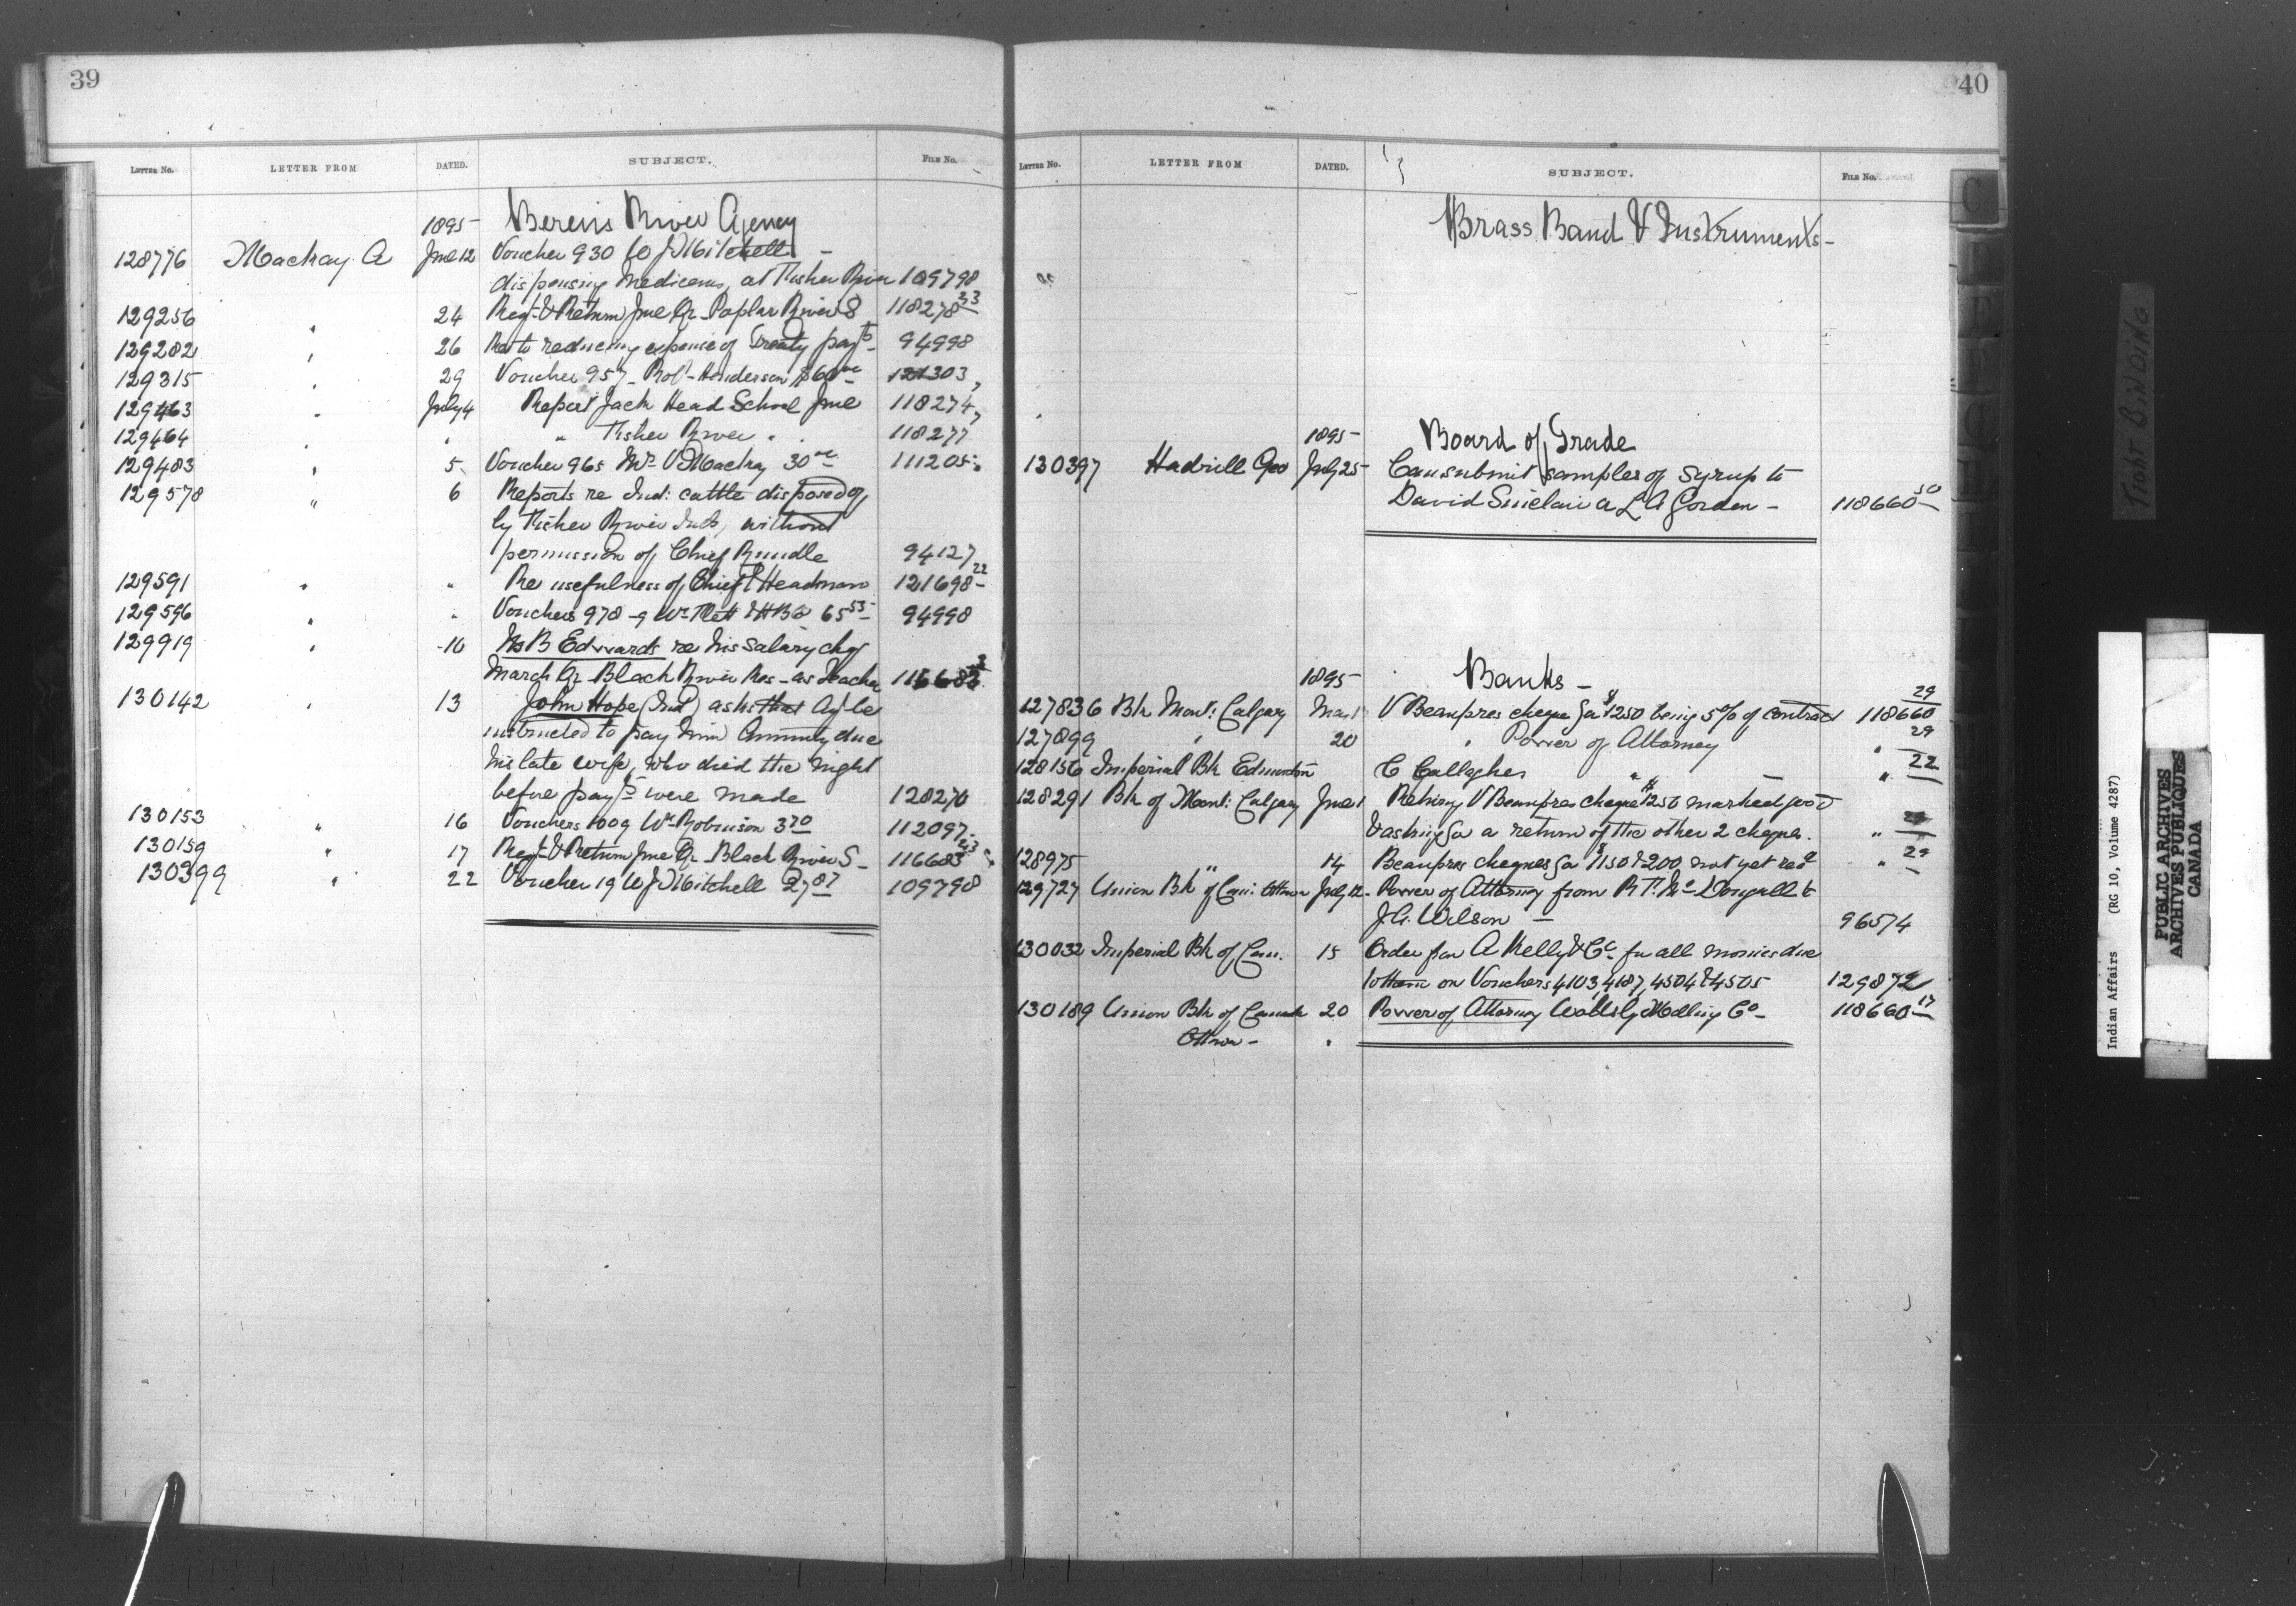 39
LETTER NO. LETTER FROM DATED. SUBJECT. FILE NO.
1895 - Berens River Agency
128776 Mackay A June 12 Voucher 930 W J Mitchell -
dispensing medicines, at Fisher River 109798
129256 " 24 Reqn & Return June Qr - Poplar River S 118278 23
129282 " 26 Re to reducing expense of Treaty payts - 94998
129315 " 29 Voucher 957 - Robt Henderson $60 00 121303
129463 " July 4 Report Jack Head School June 118274
129464 " " " Fisher River " " 118277
129483 " 5 Voucher 965 Mrs Mackay 30 00 111205
129578 " 6 Reports re Ind: cattle disposed of
by Fisher River Inds, without
permission of Chief Rundle 94127
129591 " " Re usefulness of Chief & Headman 121698 22
129596 " " Vouchers 978-9 Wm Flett & HBCo 65 55 94998
129919 " 10 B Edwards re his salary chq
March Qr - Black River Res - as Teacher
130142 " 13 John Hope (Ind) asks that Agt be
instructed to pay him Annuity due
his late wife, who died the night
before payts were made 128270
130153 " 16 Vouchers 1009 Wm Robinson 3 70 112097
130159 " 17 Reqn & Return June Qr - Black River S - 116683 23
130399 " 22 Voucher 19 W J Mitchell 27 87 109798
40
LETTER NO. LETTER FROM DATED. SUBJECT. FILE NO.
Brass Band & Instruments -
1895 - Board of Trade
130397 Hadrill Geo July 25 - Can submit samples of Syrup to
David Sinclair a L A Gordon - 118660 50
1895 - Banks -
127836 Bk Mont: Calgary May 1 V Beaupres cheque for $1250 being 5% of contract 118660 29
127899 " 20 " Power of Attorney " 29
128156 Imperial Bk Edmonton C Gallagher " - " 22
128291 Bk of Mont: Calgary June 1 Retning V Beaupres cheque $1250 marked good
& asking for a return of the other 2 cheques. "
128975 " 14 Beaupres cheques for $1150 & 200 not yet recd " 29
129727 Union Bk of Can: Ottawa July 12 - Power of Attorney from R T. McDougall to
J. G. Wilson - 96574
130032 Imperial Bk of Can. 15 Order for A Kelly & Co for all monies due
to them on Vouchers 4103, 4187, 4504 & 4505 129872
130189 Union Bk of Canada 20 Power of Attorney Milling Co - 118660 17
Ottawa - "
Tight BINDING
Indian Affairs (RG 10, Volume 4287)
PUBLIC ARCHIVES
ARCHIVES PUBLIQUES
CANADA